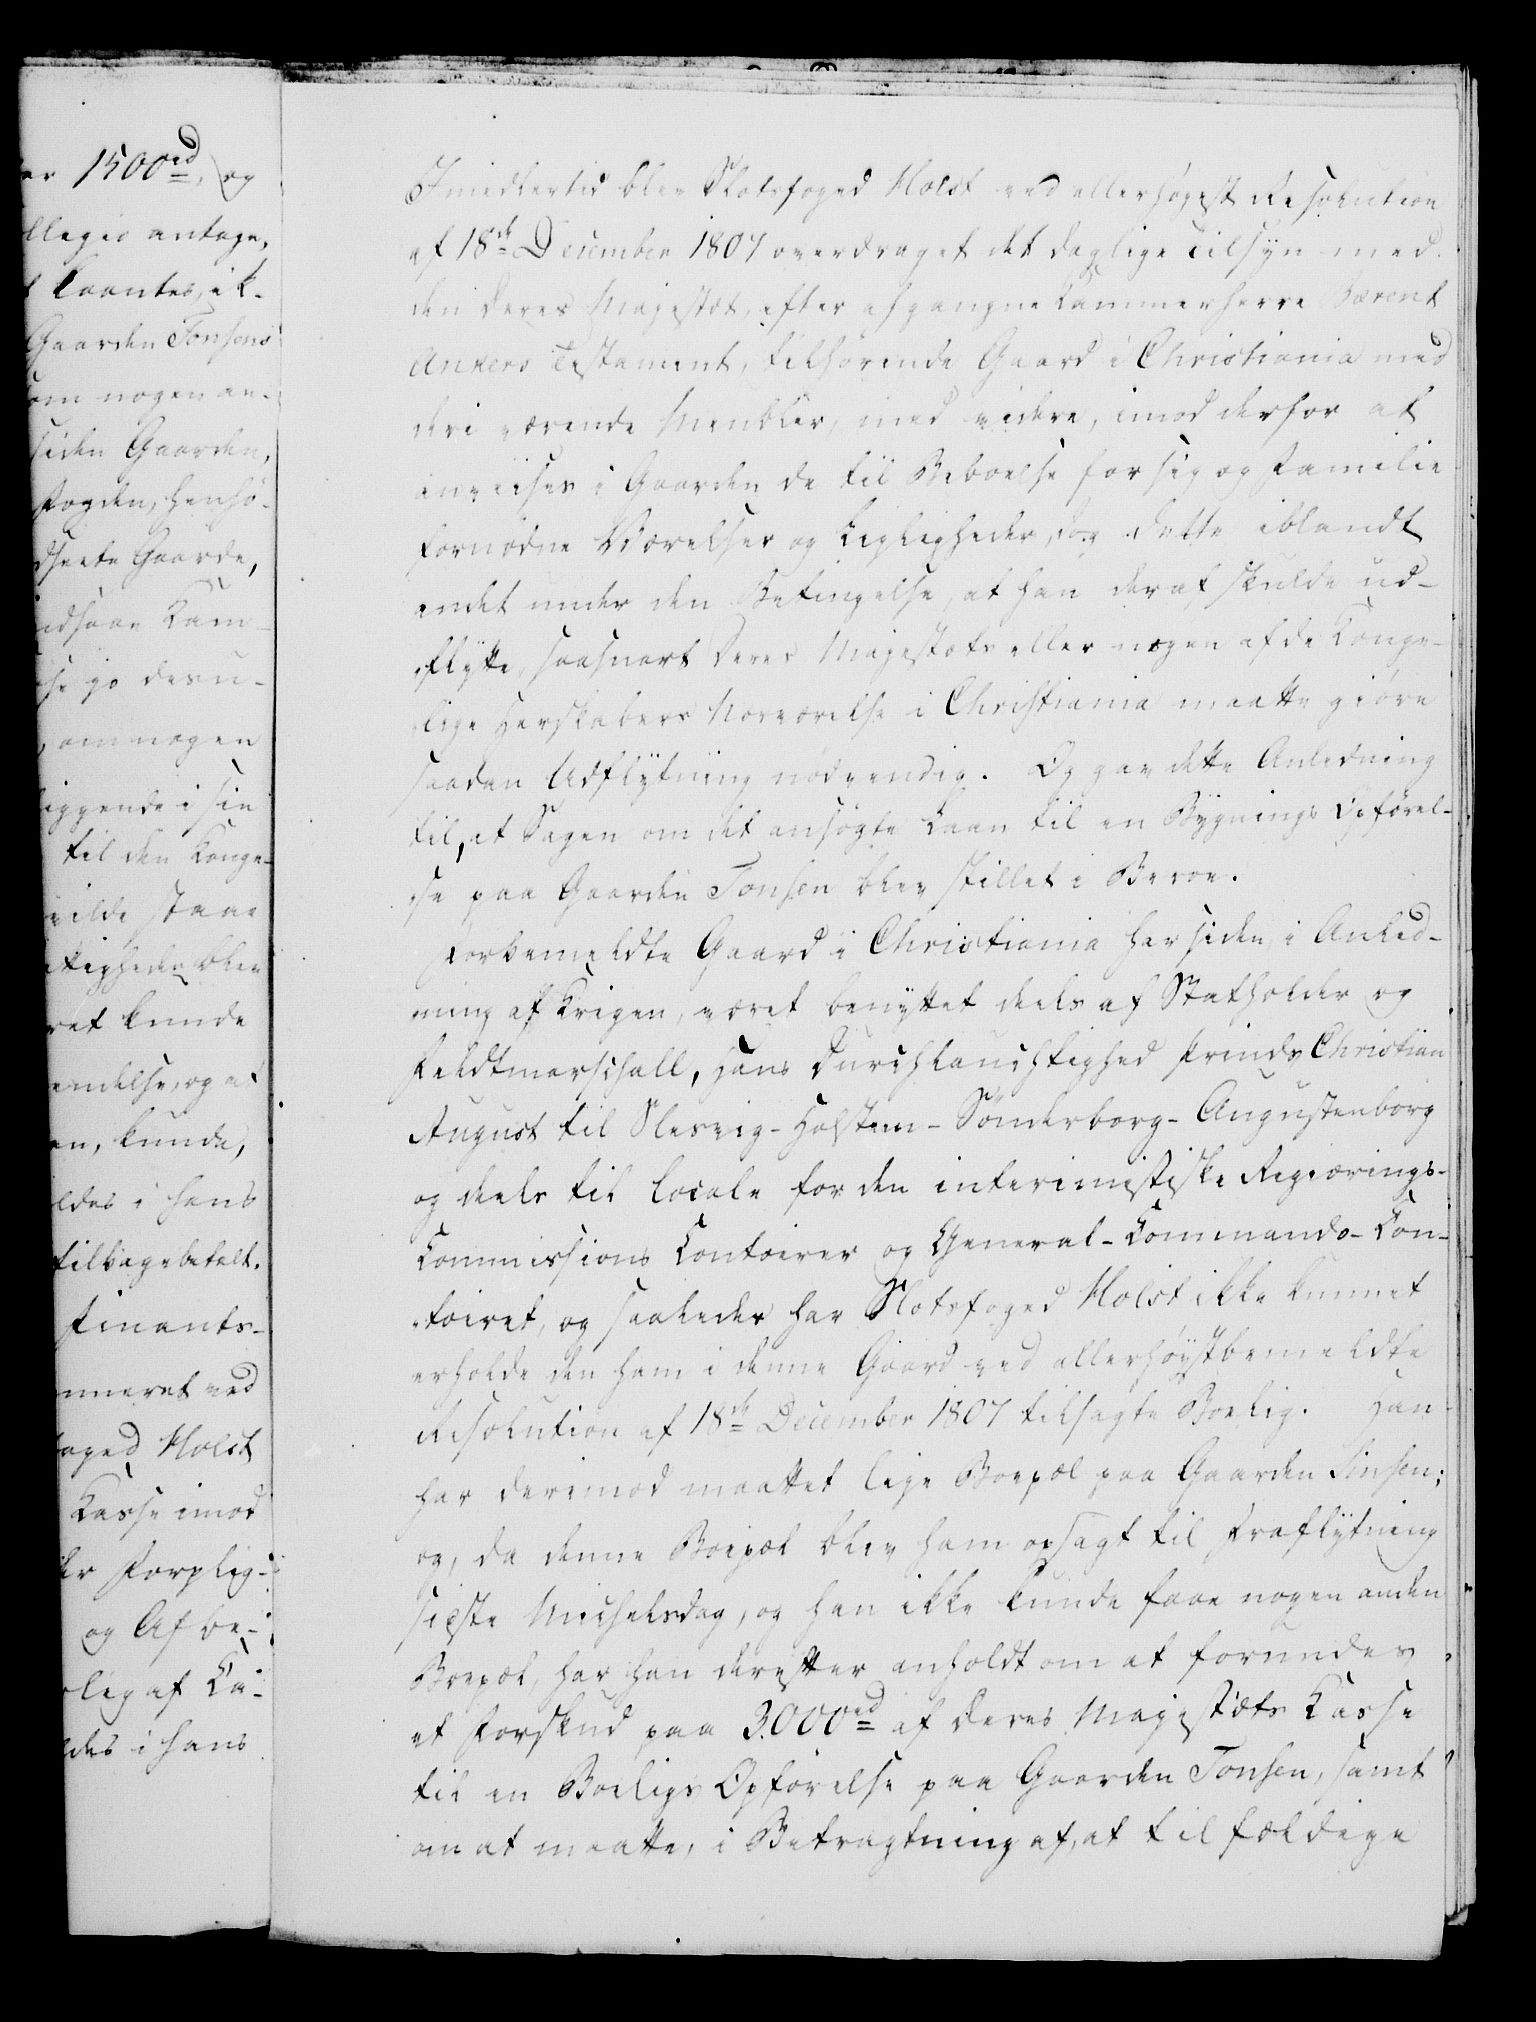 er 1500rd, og
llegie antage,
t Laantes, ik-
Gaarden Tonsens
om nogen an-
siden Gaarden,
Fogden, henhø-
dseete Gaarde,
Kam-
se jo desu-
, om nogen
liggende i sin
til den Konge-
vilde staae
ttigheden blev
ret kunde
endelse, og at
en, kunde,
ldes i hans
tilbagebetalt.
Finants-
nneret ved
foged Holst
Kasse imod
er Forplig-
og Afbe-
lig af Ca-
ldes i hans
Imidlertid blev Slotsfoged Holst ved allerhøyest Resolution
af 18de December 1807 overdraget det daglige Tilsyn med
den Deres Majestæt, efter afgangne Kammerherre Bærent
Ankers Testament, tilhørende Gaard i Christiania med
deri værende Meubler, med videre, imod derfor at
anviises i Gaarden de til Beboelse for sig og Familie
fornødne Værelser og Leyligheder, dog dette iblandt
andet under den Betingelse, at han deraf skulde ud-
flytte, saasnart Deres Majestæts eller nogen af de Konge-
lige Herskabers Nærværelse i Christiania maatte giøre
saadan Udflytning nødvendig. Og gav dette Anledning
til, at Sagen om det ansøgte Laan til en Bygnings Opførel-
se paa Gaarden Tonsen blev stillet i Beroe.
Forbemeldte Gaard i Christiania har siden, i Anled-
ning af Krigen, været benyttet deels af Statholder og
Feldtmarschall, Hans Durchlauchtighed Prinds Christian
August til Slesvig-Holsteen-Sønderborg-Augustenborg
og deels til Locale for den interimistiske Regierings-
Commissions Contoirer og General-Commando-Con-
toiret, og saaledes har Slotsfoged Holst ikke kunnet
erholde den ham i denne Gaard ved allerhøystbemeldte
Resolution af 18de December 1807 tilsagte Boelig. Han
har derimod maattet leye Boepæl paa Gaarden Sinsen;
og, da denne Boepæl blev ham opsagt til Fraflytning
sidste Michelsdag, og han ikke kunde faae nogen anden
Boepæl, har han derefter anholdt om at forundes
et Forskud paa 3000rd af Deres Majestæts Casse
til en Boeligs Opførelse paa Gaarden Tonsen, samt
om at maatte, i Betragtning af, at tilfældige